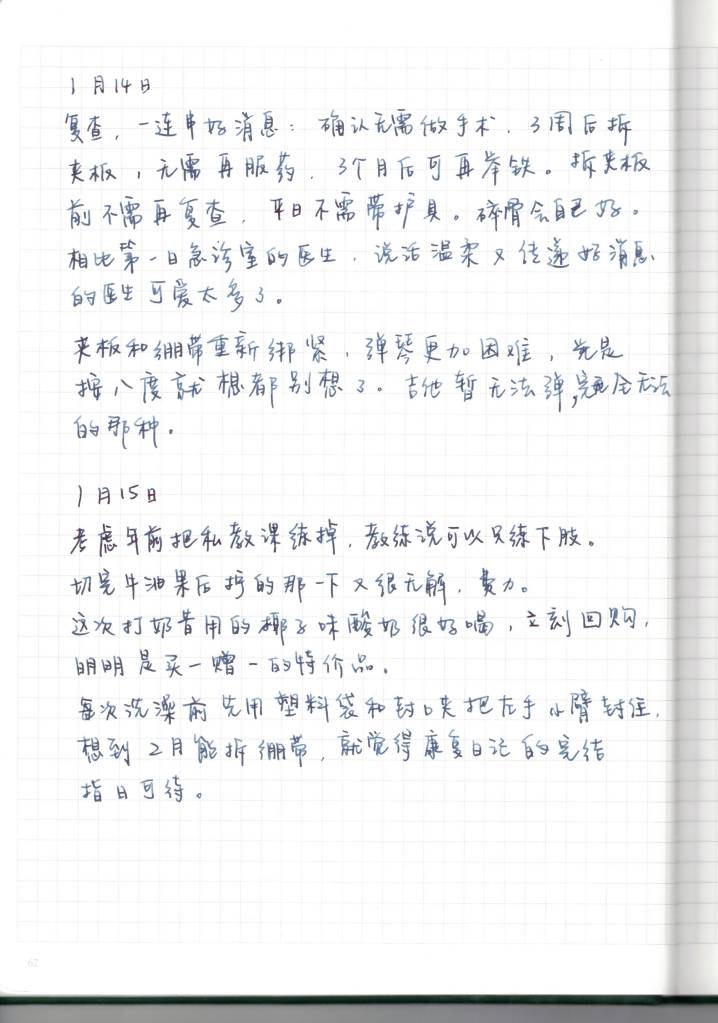 1月14日
复查，一连串好消息：确认无需做手术，3周后拆
夹板，无需再服药，3个月后可再举铁。拆夹板
前不需再复查，平日不需带护具。碎骨会自己好。
相比第一日急诊室的医生，说话温柔又传递好消息
的医生可爱太多了。
夹板和绷带重新绑紧，弹琴更加困难，光是
按八度就想都别想了。吉他暂无法弹，完全无法
的那种。
1月15日
考虑年前把私教课练掉，教练说可以只练下肢。
切完牛油果后拧的那一下又很无解，费力。
这次打奶昔用的椰子味酸奶很好喝，立刻回购，
明明是买一赠一的特价品。
每次洗澡前先用塑料袋和封口夹把左手小臂封住，
想到2月能拆绷带，就觉得康复日记的完结
指日可待。
62